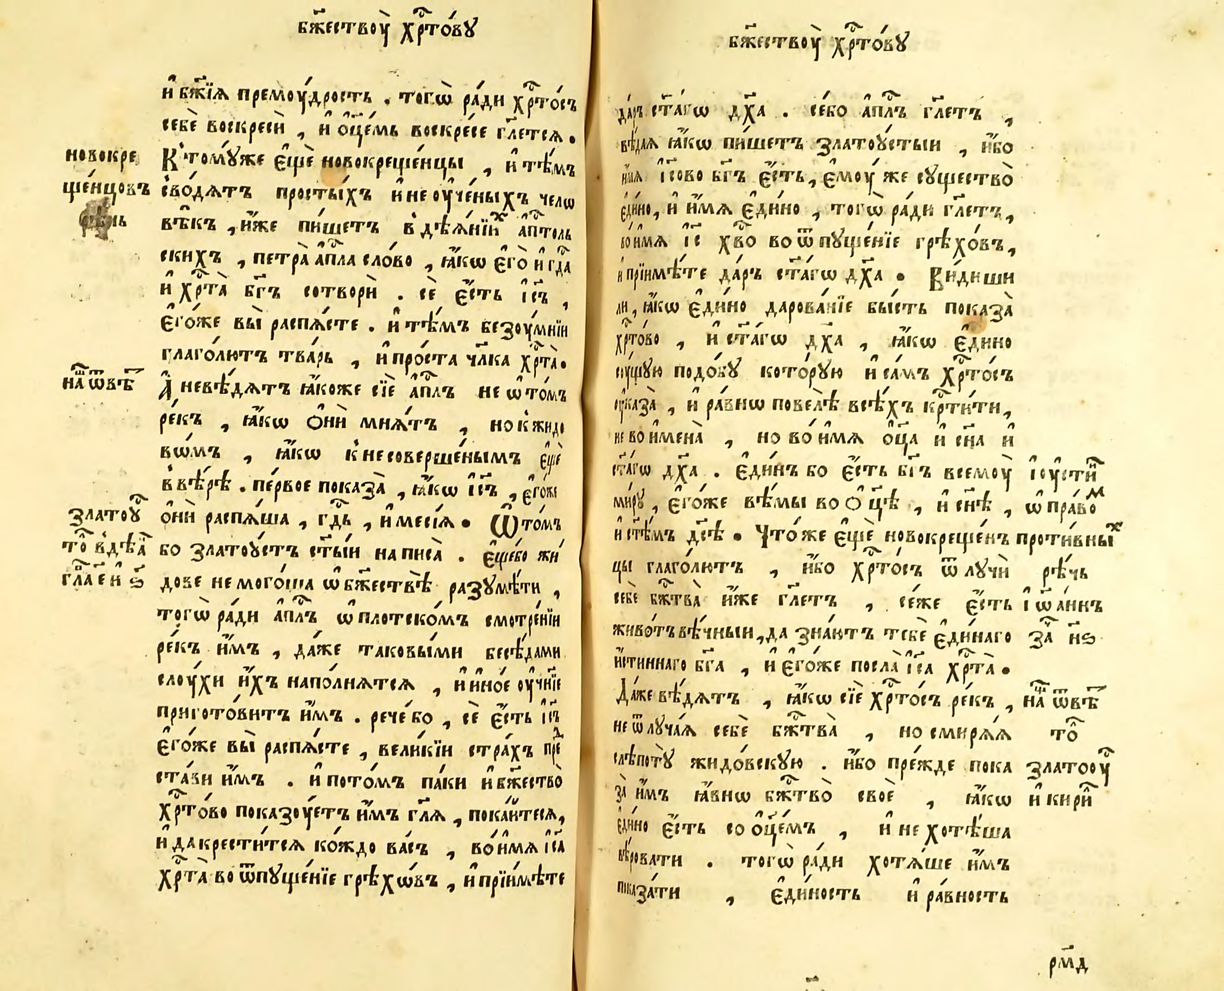 бж҃ествоу̀ хрⷭ҇то́ву
и҆ бж҃їѧ премоу́дрость . тогѡ̀ ра́ди хрⷭ҇то́съ
себѐ воскресѝ , и҆ ѻ҆ц҃е́мь воскре́се гл҃етсѧ .
новокре К̾томꙋ́же є҆щѐ новокреще́нцы , и҆ тѣ́мъ
ще́нцовъ сво́дѧтъ просты́хъ и҆ не оу҆че́ныхъ чело
вѣ́къ , и҆́же пи́шетъ в̾дѣѧ́нїиⷯ а҆пⷭ҇толь
скихъ , петра̀ а҆пⷭ҇ла сло́во , ꙗ҆́кѡ є҆го̀ и҆ гдⷭ҇а
и҆ хрⷭ҇та̀ бг҃ъ сотворѝ . се є҆́сть і҆с҃ъ ,
є҆го́же вы̀ распѧ́сте . и҆ тѣ́мъ безоу́мнїи
глаго́лютъ тва́рь , и҆ про́ста чл҃ка хрⷭ҇та̀ .
на̀ ѿвѣⷮ А҆ невѣ́дѧтъ ꙗ҆́коже сїѐ а҆пⷭ҇лъ не ѡ҆ то́мъ
ре́къ , ꙗ҆́кѡ ѻ҆нѝ мнѧ́тъ , но к̾ жидо
вѡ́мъ , ꙗ҆́кѡ к̾ несоверше́нымъ є҆щѐ
в̾ вѣ́рѣ . пе́рвое показа̀ , ꙗ҆́кѡ і҆с҃ъ , є҆го́же
златоуⷭ҇ ѻ҆нѝ распѧ́ша , гдⷭ҇ь , и҆ месі́ѧ . Ѡ҆ то́мъ
то̀ в̾дѣѧ бо златоу́стъ ст҃ы́и написа̀ . є҆ще́бо жи
гл҃а є҃ и҆ ѕ҃ дове не мого́ша ѡ҆ бж҃ествѣ̀ разꙋмѣ́ти ,
тогѡ̀ ра́ди а҆пⷭ҇лъ ѡ҆ пло́тском смотре́нїи
ре́къ и҆̀мъ , да́же таковы́ми бесѣ́дами
слꙋ́хи и҆́хъ напо́лнѧтсѧ , и҆ и҆но́е оу҆че́нїе
пригото́витъ и҆̀мъ . рече́ бо , сѐ є҆́сть і҆с҃ъ
є҆го́же вы̀ распѧ́сте , вели́кїи стра́хъ преⷣ
ста́ви и҆̀мъ . и҆ пото́мъ па́ки и҆ бж҃ество̀
хрⷭ҇то́во показꙋ́етъ и҆̀мъ гл҃ѧ , пока́итесѧ ,
и҆ да крести́тсѧ ко́ждо ва́съ , во и҆́мѧ і҆с҃а
хрⷭ҇та̀ во ѿпꙋще́нїе грѣхѡ́въ , и҆ прїи́мѣте
бж҃ествоу̀ хрⷭ҇то́ву
да́ръ ст҃а́гѡ дх҃а . се́бо а҆пⷭ҇лъ гл҃етъ ,
вѣ́даѧ ꙗ҆́кѡ пи́шетъ златоу́стыи , и҆́бо
и҆́мѧ і҆с҃ово бг҃ъ є҆́сть , є҆моу́ же сꙋщество̀
є҆ди́но , и҆ и҆́мѧ є҆ди́но , тогѡ̀ ра́ди гл҃етъ ,
во и҆́мѧ і҆с҃ хв҃о во ѿпꙋще́нїе грѣхо́въ ,
и҆ прїи́мѣте да́ръ ст҃а́гѡ дх҃а . Ви́диши
ли , ꙗ҆́кѡ є҆ди́но дарова́нїе бы́сть показа̀
хрⷭ҇то́во , и҆ ст҃а́гѡ дх҃а , ꙗ҆́кѡ є҆ди́но
сꙋ́щꙋю подо́бꙋ которꙋ́ю и҆ са́мъ хрⷭ҇то́съ
ꙋ҆каза̀ , и҆ ра́внѡ повелѣ̀ всѣ́хъ крⷭ҇ти́ти ,
не во и҆мена̀ , но во и҆́мѧ ѻ҆ц҃а̀ и҆ сн҃а и҆
ст҃а́гѡ дх҃а . є҆ди́нъ бо є҆́сть бг҃ъ всемоу̀ і҆оусти́ⷩ
ми́рꙋ , є҆го́же вѣ́мы во ѻ҆ц҃ѣ , и҆ сн҃ѣ , ѡ҆ пра́воⷨ
и҆ ст҃ѣ́мъ дс҃ѣ . Что́же є҆щѐ новокреще́н противныⷯ
цы глаго́лютъ , и҆́бо хрⷭ҇то́съ ѿлꙋчѝ рѣ́чь
себѐ бж҃тва и҆́же гл҃етъ , се́же є҆́сть і҆ѡа́ннъ
живо́тъ вѣ́чныи , да зна́ютъ тебѐ є҆ди́наго за҃ н҃ѕ
и҆́стиннаго бг҃а , и҆ є҆го́же посла̀ і҆с҃а хрⷭ҇та̀ .
Да́же вѣ́дѧтъ , ꙗ҆́кѡ сїѐ хрⷭ҇то́съ ре́къ , на̀ ѿвѣⷮ
не ѿлꙋча́ѧ себѐ бж҃тва̀ , но смирѧ́ѧ то̀
слѣпотꙋ̀ жидо́вскꙋю . и҆́бо пре́жде пока златооу҆ⷭ҇
за̀ и҆̀мъ ꙗ҆́внѡ бж҃тво̀ своѐ , ꙗ҆́кѡ и҆ кири́ⷧ
є҆ди́но є҆́сть со ѻ҆ц҃е́мъ , и҆ не хотѣ́ша
вѣ́ровати . тогѡ̀ ра́ди хотѧ́ше и҆̀мъ
показа́ти , є҆ди́ность и҆ ра́вность
рм҃д